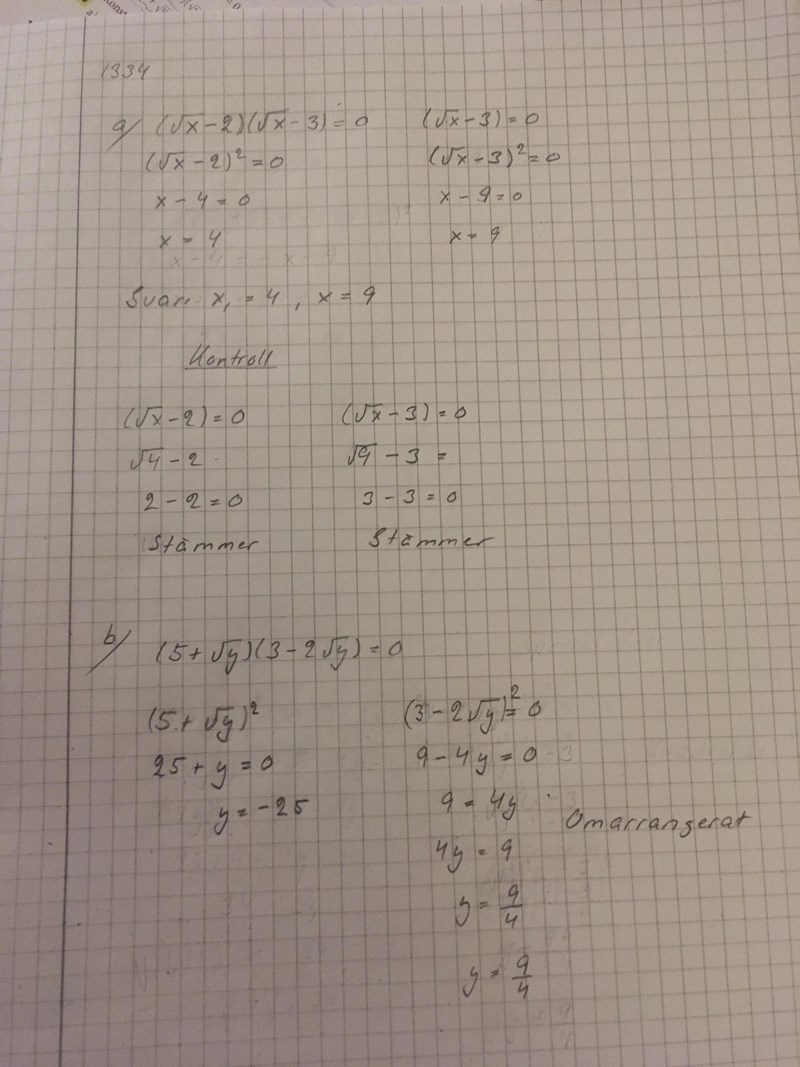 1334
a) (√x - 2)(√x - 3) = 0
(√x - 2)² = 0
x - 4 = 0
x = 4
(√x - 3) = 0
(√x - 3)² = 0
x - 9 = 0
x = 9
Svar: x₁ = 4, x = 9
Kontroll
(√x - 2) = 0
√4 - 2
2 - 2 = 0
Stämmer
(√x - 3) = 0
√9 - 3 =
3 - 3 = 0
Stämmer
b) (5 + √y)(3 - 2√y) = 0
(5 + √y)²
25 + y = 0
y = -25
(3 - 2√y)² = 0
9 - 4y = 0
9 = 4y
Omarrangerat
4y = 9
y = 9/4
y = 9/4